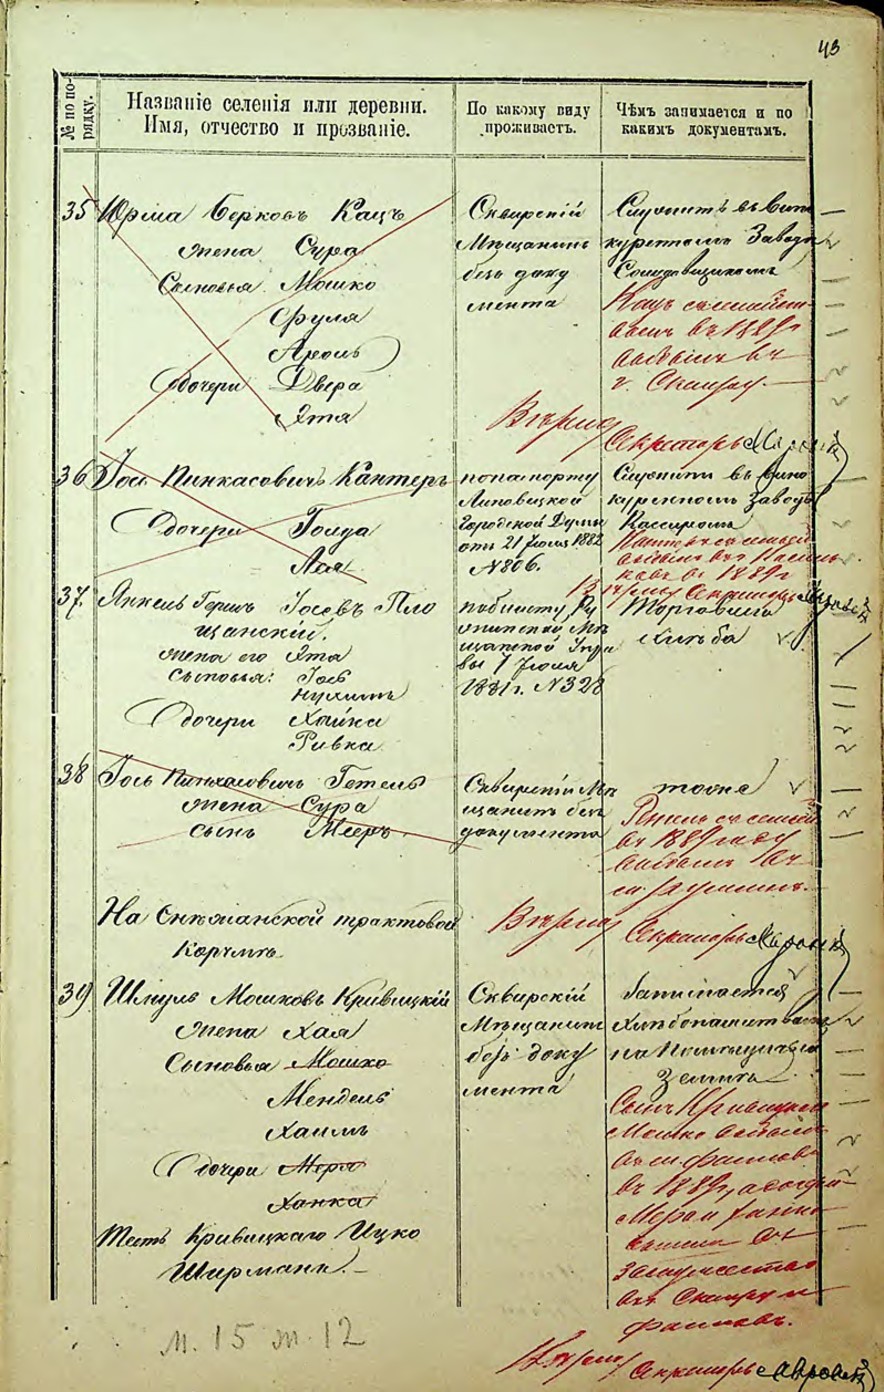 43
№ по по-
рядку.
Названіе селенія или деревни.
Имя, отчество и прозваніе.
По какому виду
проживаетъ.
Чѣмъ занимается и по
какимъ документамъ.
35 Юрма Берковъ Кацъ
жена Сура
Сыновья Мошко
Сруля
Аронъ
дочери Двера
Эта
Сквирскій
Мѣщанинъ
безъ доку
мента
Служитъ въ вино
куренномъ Заводѣ
Кацъ съ семейст
вомъ въ 1889 г
выбылъ въ
г. Сквиру.
Вѣрно
Секретарь
36 Іось Пинкасовичъ Кантеръ
дочери Голда
Лея
по паспорту
Липовецкой
Городской Думы
отъ 21 Іюля 1882
№ 806.
Служитъ въ вино
куренномъ Заводѣ
Кассиромъ
въ 1889 г
Вѣрно Секретарь
37. Янкель Гершъ Іосевъ Пло
щанскій.
жена его Эта
сыновья: Іось
Нухимъ
дочери Хайка
Ривка
по билету Ру
жинской Мѣ
щанской Упра
вы 7 Іюля
1881 г. № 328
Торговлею
хлѣба
38 Іось Пинхасовичъ Гетель
жена Сура
сынъ Мееръ
Сквирскій Мѣ
щанинъ безъ
документа
тоже
съ семей
въ 1889 году
выбылъ въ
На Снѣжанской трактовой
Корчмѣ
Вѣрно Секретарь
39 Шмуль Мошковъ Кривицкій
жена Хая
Сыновья Мошко
Мендель
Хаимъ
дочери Мера
Ханка
Тесть Кривицкаго Ицко
Ширманъ.
Сквирскій
Мѣщанинъ
безъ доку
мента
Занимается
хлѣбопашествомъ
на Помѣщичьей
Землѣ
Сынъ Кривицкаго
Мошко выбылъ
въ м. Фастовъ
въ 1889 г, а дочери
Мера и Ханка
вышли въ
Замужество
въ Сквиру и
Фастовъ.
м. 15 ж. 12
Вѣрно Секретарь